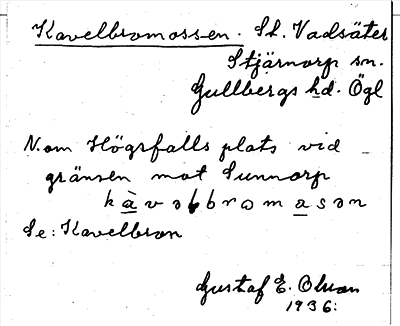 Kavelbromossen. St. Vadsäter
Stjärnorp sn.
Gullbergs hd. Ögl
N. om Högsfalls plats vid
gränsen mot Sunnorp
kàvəlbromasən
Se: Kavelbron
Gustaf E. Olsson
1936.